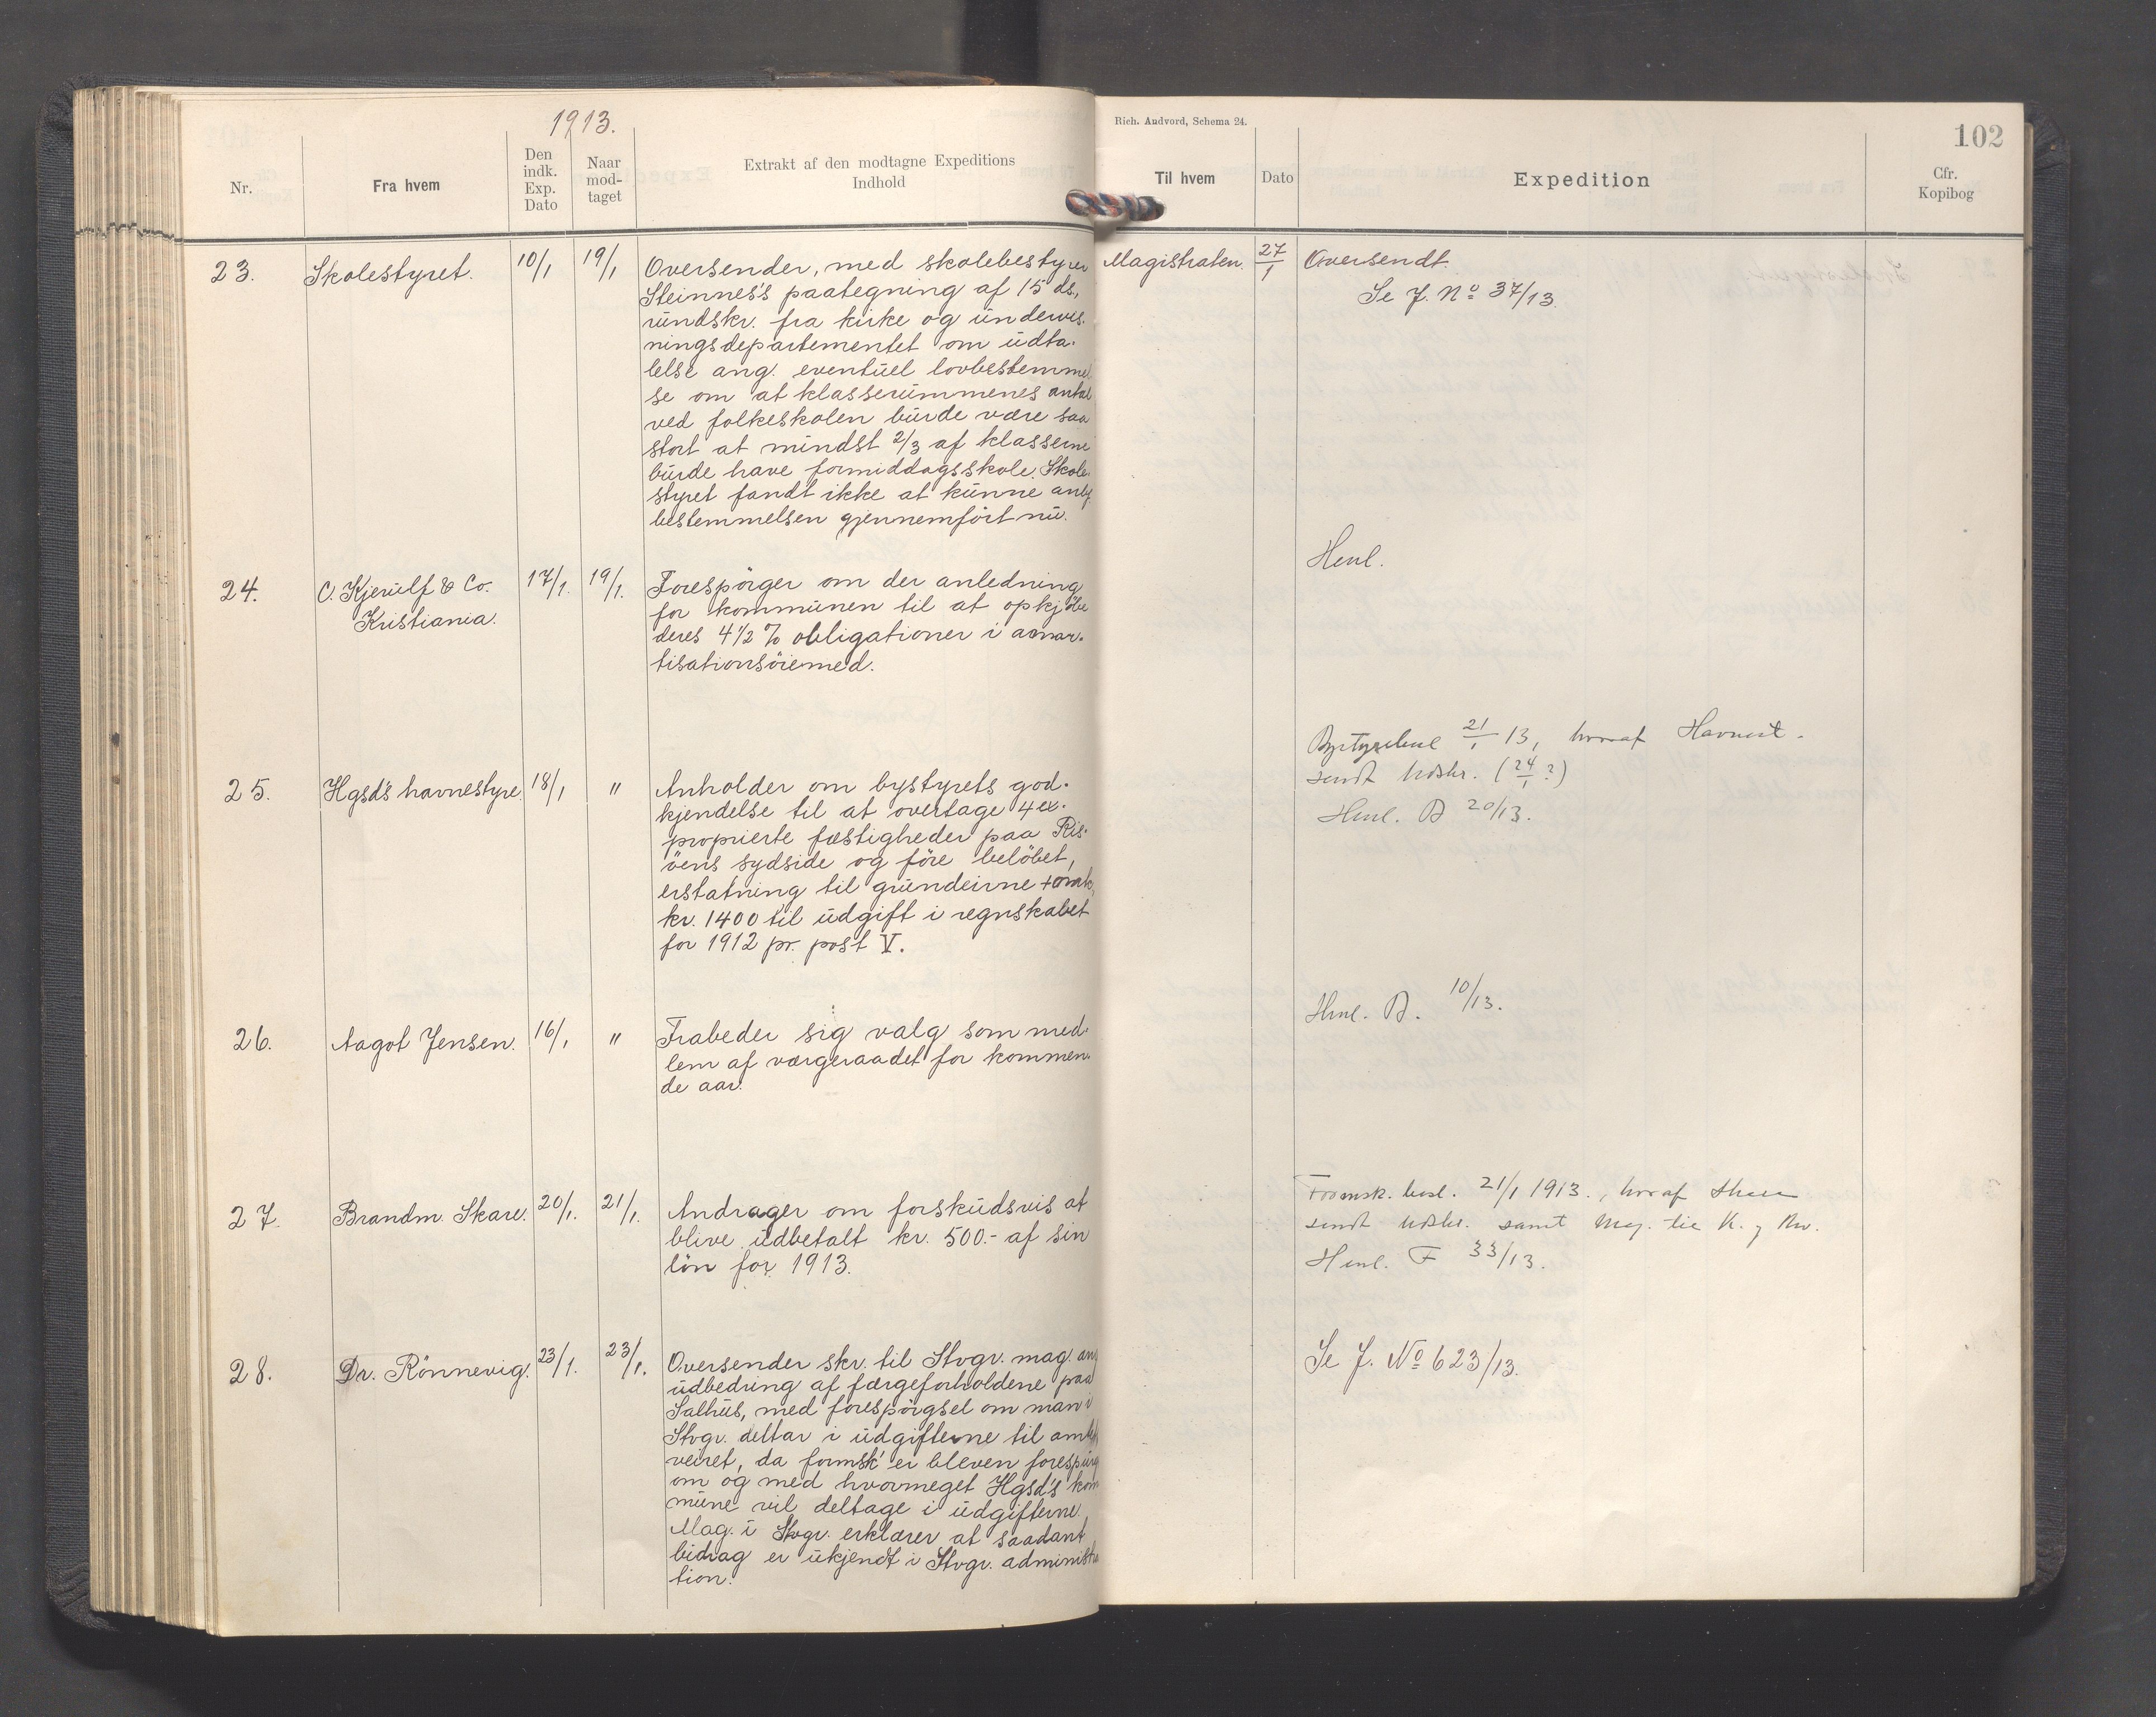 1913.
Rich. Andvord, Schema 24.
102
Nr.
Fra hvem
Den indk. Exp. Dato
Naar mod-taget
Extrakt af den modtagne Expeditions Indhold
Til hvem
Dato
Expedition
Cfr. Kopibog
23.
Skolestyret.
10/1
19/1
Oversender, med skolebestyrer
Steinnes's paategning af 15 ds.,
rundskr. fra kirke og undervis-
ningsdepartementet om udta-
lelse ang. eventuel lovbestemmel
se om at klasserummenes antal
ved folkeskolen burde være saa
stort at mindst 2/3 af klasserne
burde have formiddagsskole. Skole-
styret fandt ikke at kunne anbef.
bestemmelsen gjennemført nu.
Magistraten.
27/1
Oversendt.
Se J. No 37/13.
24.
C. Kjerulf & Co.
Kristiania.
17/1.
19/1.
Forespörger om der anledning
for kommunen til at opkjöbe
deres 4 1/2 % obligationer i amor-
tisationsöiemed.
Henl.
25.
Hgsd's havnestyre.
18/1
"
Anholder om bystyrets god-
kjendelse til at overtage 4 ex-
proprierte fæstigheder paa Ris-
öens sydside og före belöbet,
erstatning til grundeierne + omk.
kr. 1400 til udgift i regnskabet
for 1912 pr. post V.
21/1 13, hvoraf Havnest.
sendt Udskr. (24/1 ?)
Henl. B 20/13.
26.
Aagot Jensen.
16/1
"
Frabeder sig valg som med-
lem af værgeraadet for kommen-
de aar.
Henl. B. 10/13.
27.
Brandm. Skare.
20/1.
21/1.
Andrager om forskudsvis at
blive udbetalt kr. 500.- af sin
lön for 1913.
Formsk. besl. 21/1 1913., hvoraf Skare
sendt Udskr. samt Mag. til K. og Rev.
Henl. F 33/13.
28.
Dr. Rönnevig.
23/1.
23/1.
Oversender skr. til Stvgr. mag. ang
udbedring af færgeforholdene paa
Salhus, med forespörgsel om man i
Stvgr. deltar i udgifterne til amts
veiret, da formsk. er bleven forespurgt
om og med hvormeget Hgsd's kom
mune vil deltage i udgifterne.
Mag. i Stvgr. erklærer at saadant
bidrag er ukjendt i Stvgr. administra
tion.
Se J. No 623/13.